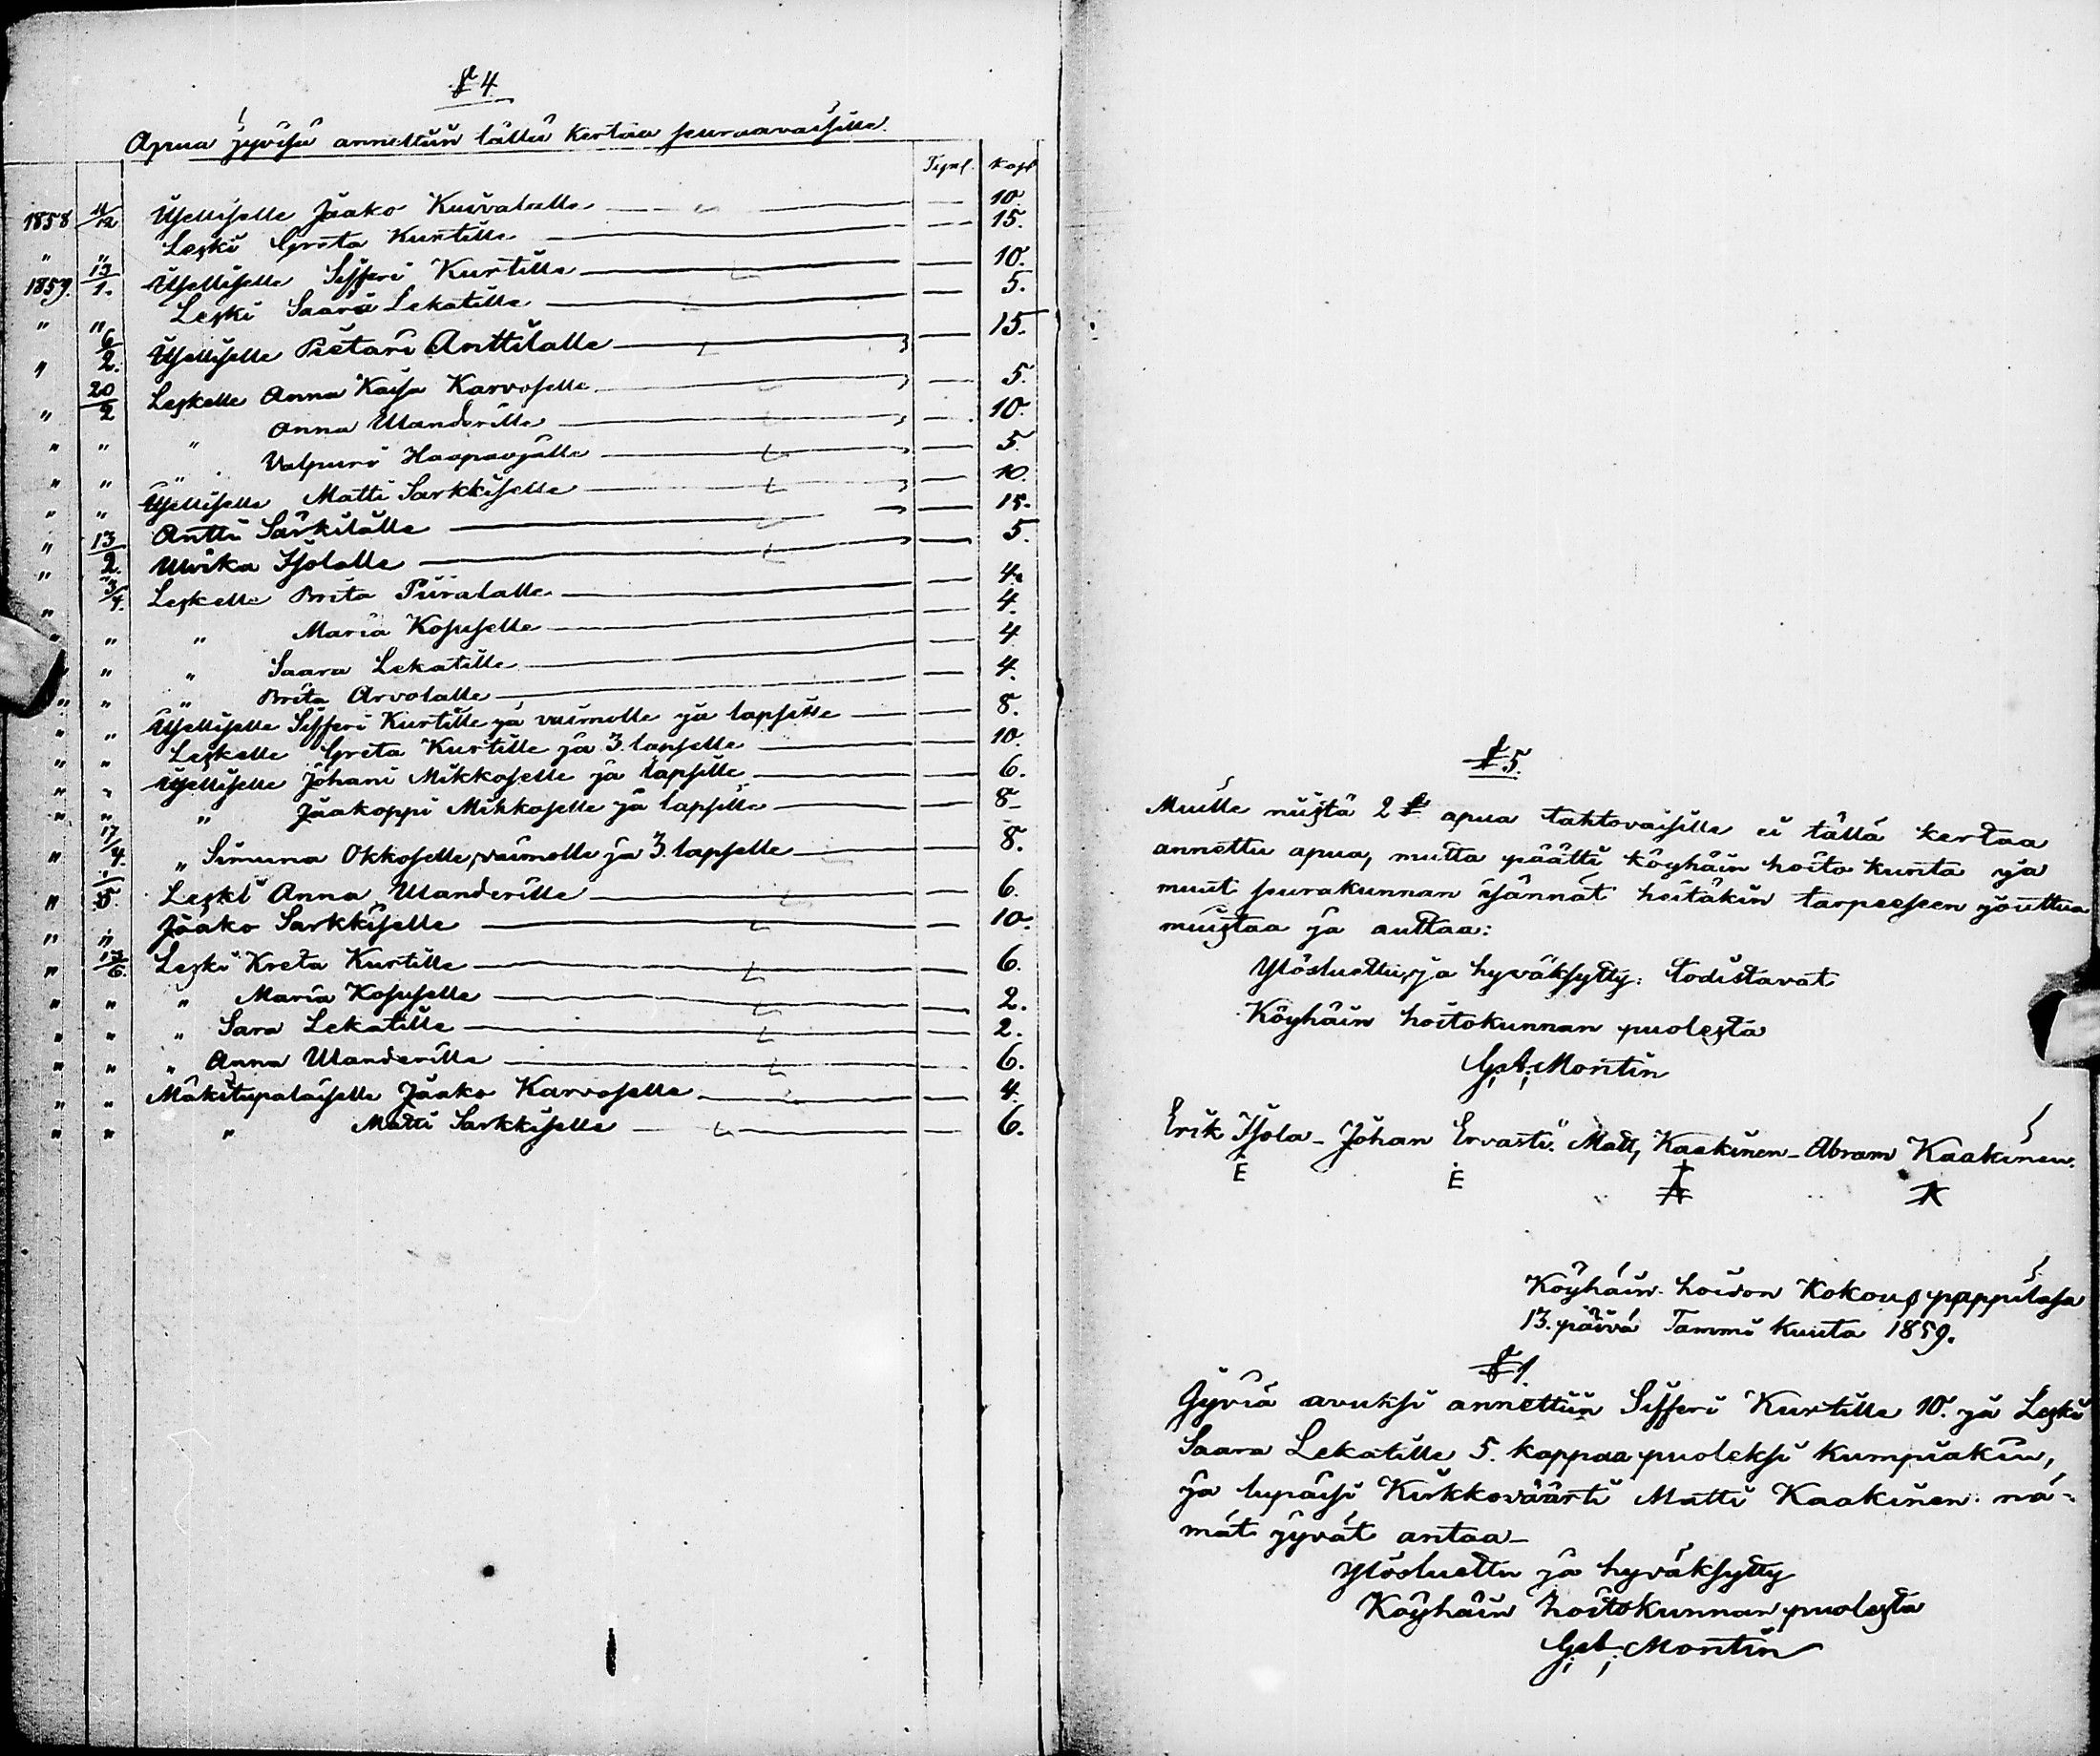 § 4
Apua jyvisä annettiin tällä kertaa seuraavaisille.
Tynl. Kapl
1858 11/12 Itselliselle Jaako Kuivalalle — 10.
" " Leski Greta Kurtille — 15.
1859. 13/1. Itselliselle Sifferi Kurtille — 10.
" " Leski Saara Lekatille — 5.
" 6/2. Itselliselle Pietari Anttilalle — 15.
" 20/2 Leskelle Anna Kaisa Karvoselle — 5.
" " " Anna Ulanderille — 10.
" " " Valpuri Haapaojalle — 5.
" " Itselliselle Matti Sarkkiselle — 10.
" 13/2. Antti Särkilälle — 15.
" Ulrika Isolalle — 5.
" 3/4. Leskelle Brita Piiralalle — 4.
" " " Maria Kosuselle — 4.
" " " Saara Lekatille — 4
" " " Brita Arvolalle — 4.
" " Itselliselle Sifferi Kurtille ja vaimolle ja lapsille — 8.
" " Leskelle Greta Kurtille ja 3. lapselle — 10.
" " Itselliselle Johani Mikkoselle ja lapsille — 6.
" " " Jaakoppi Mikkoselle ja lapsille — 8
" 17/4. " Simuna Okkoselle, vaimolle ja 3. lapselle — 8.
" 1/5. Leski Anna Ulanderille — 6.
" " Jaako Sarkkiselle — 10.
" 12/6. Leski Kreta Kurtille — 6.
" " " Maria Kosuselle — 2.
" " " Sara Lekatille — 2.
" " " Anna Ulanderille — 6.
" " Mäkitupalaiselle Jaako Karvoselle — 4.
" " " Matti Sarkkiselle — 6.
§ 5.
Muille niistä 2 § apua tahtovaisille ei tällä kertaa
annettu apua, mutta päätti köyhäin hoito kunta ja
muut seurakunnan isännät heitäkin tarpeeseen jouttua
muistaa ja auttaa:
Ylösluettu, ja hyväksytty: todistavat
Köyhäin hoitokunnan puolesta
G. A. Montin
Erik Isola - Johan Ervasti. Matt, Kaakinen - Abram Kaakinen.
Köyhäin hoidon Kokous pappilasa
13. päivä Tammi kuuta 1859.
§ 1.
Jyviä avuksi annettiin Sifferi Kurtille 10. ja Leski
Saara Lekatille 5. kappaa puoleksi kumpiakin,
ja lupaisi Kirkkoväärti Matti Kaakinen nä-
mät jyvät antaa -
Ylösluettu ja hyväksytty
Köyhäin hoitokunnan puolesta
G. A. Montin